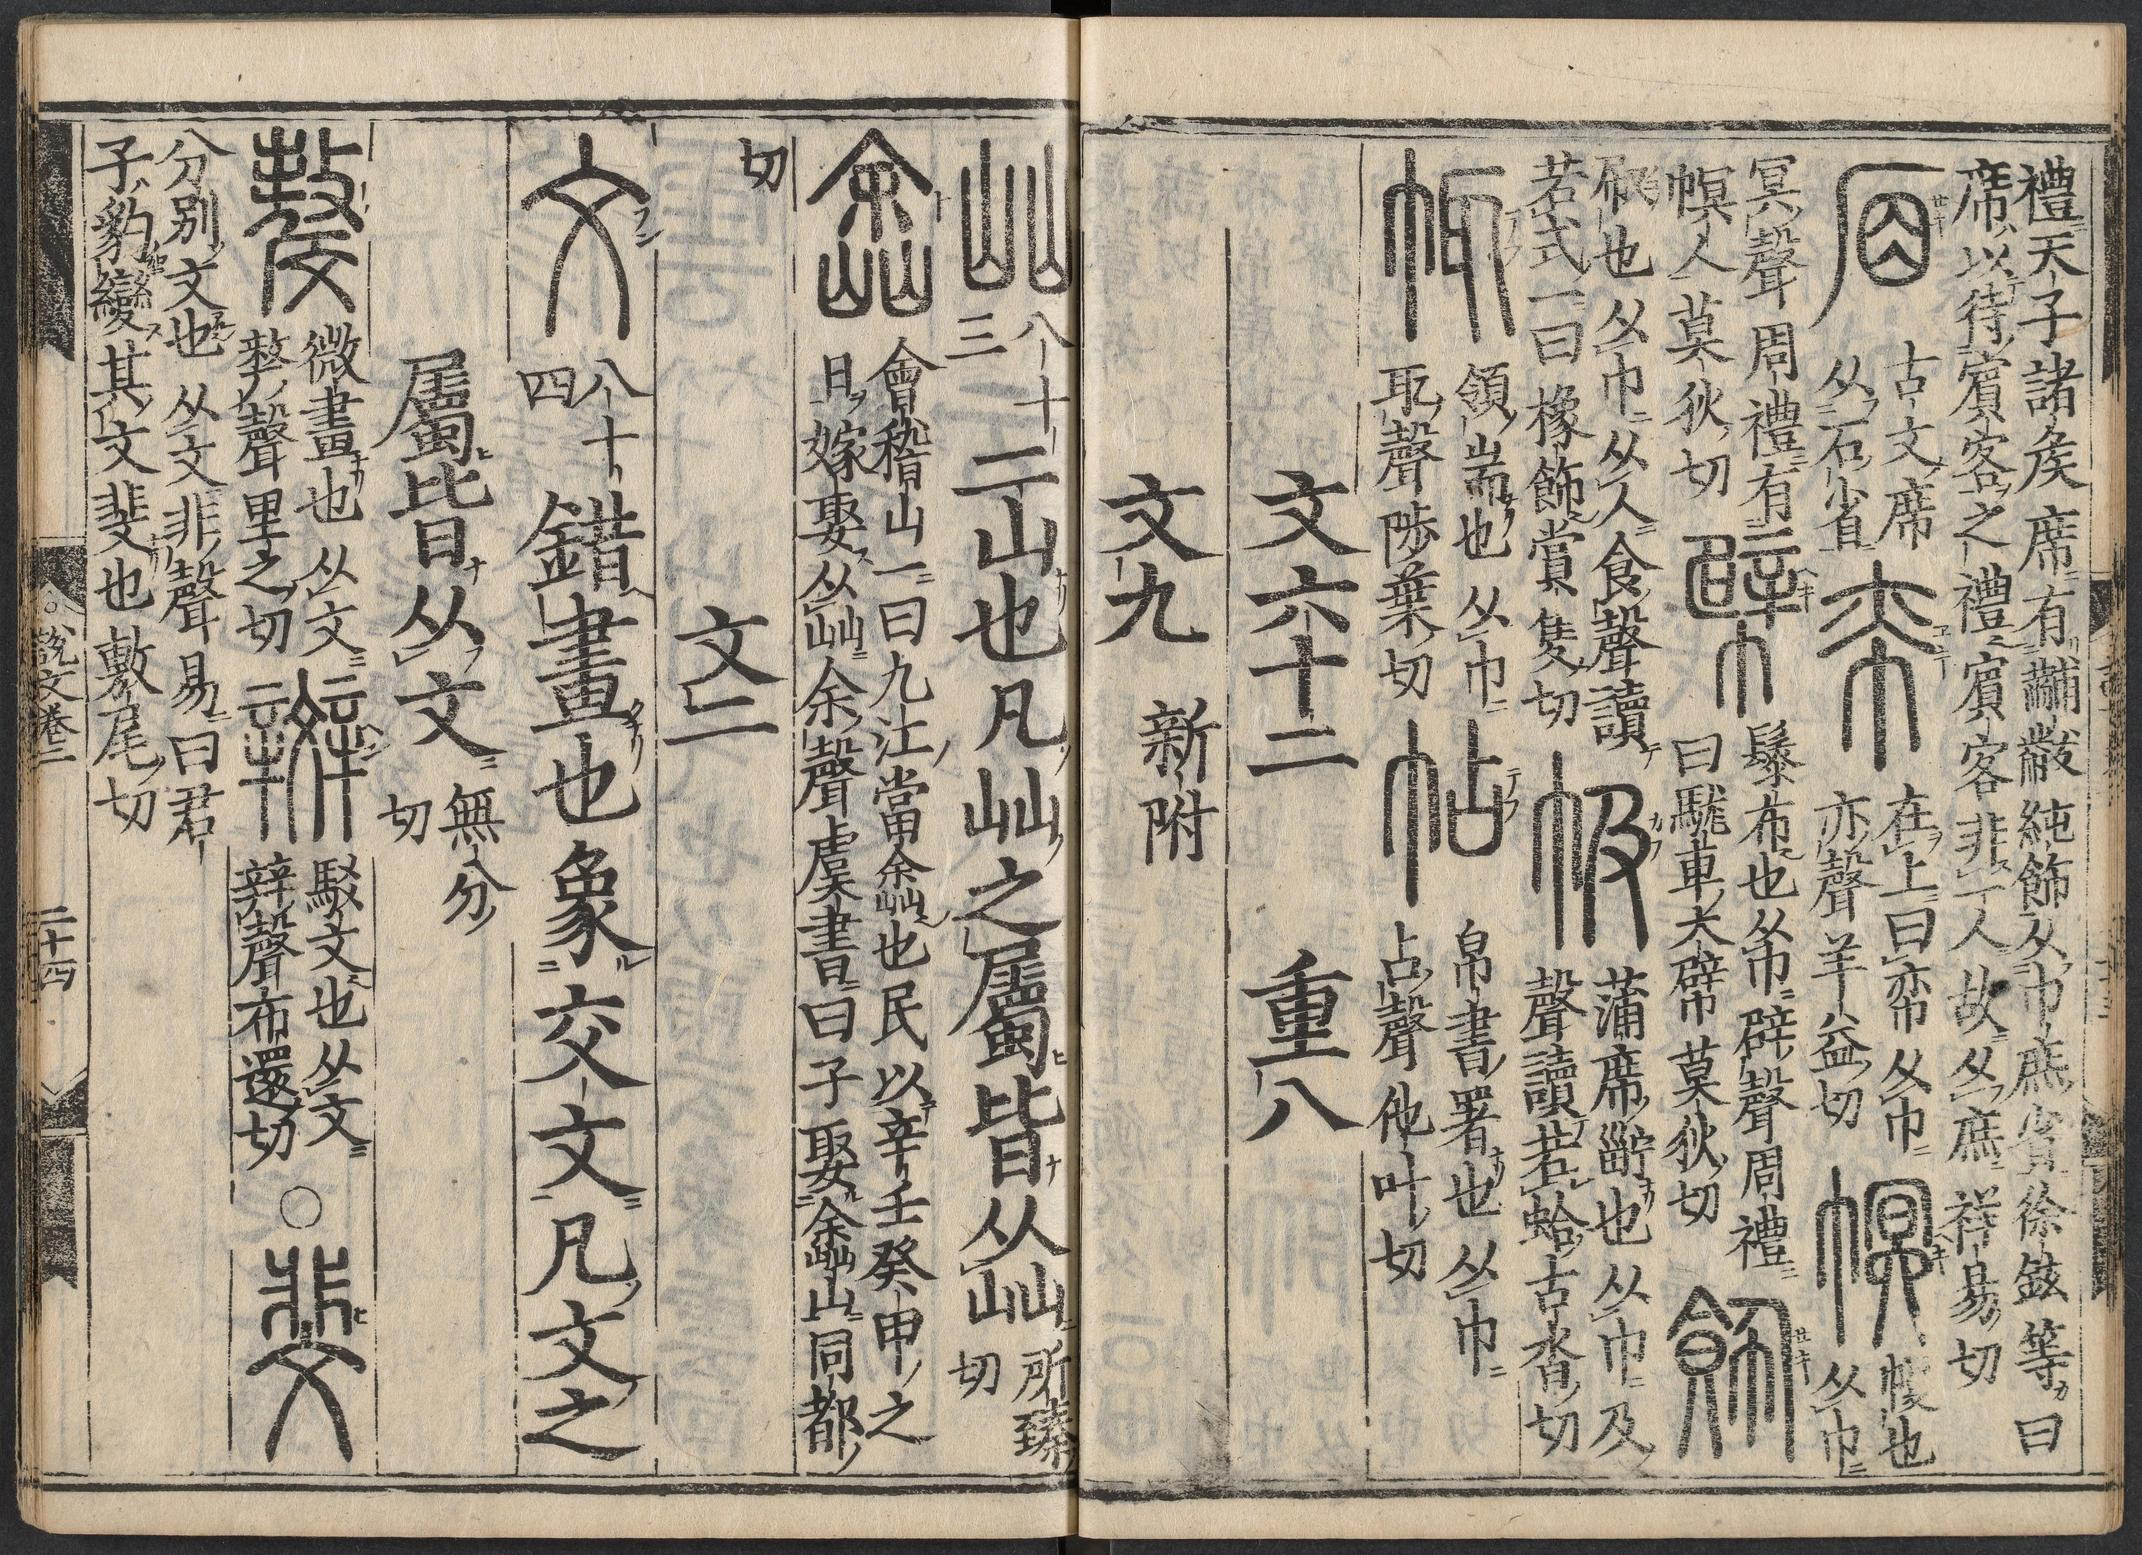 禮天子諸矦席有黼黻純飾从巾庶省徐鉉等曰
席以待賔客之禮賔客非一人故从庶祥易切
古文席
从石省
帟
在上曰帟从巾
亦聲羊益切
幎
幔也
从巾
冥聲周禮有
幎人莫狄切
幦
鬃布也从巾辟聲周禮
曰駹車大幦莫狄切
飾
㕞也从巾从人食聲讀
若式一曰橡飾賞隻切
㠷
蒲席㡒也从巾及
聲讀若蛤古沓切
㡇
領耑也从巾
耴聲陟葉切
帖
帛書署也从巾
占聲他叶切
文六十二 重八
文九 新附
屾
八十三
二山也凡屾之屬皆从屾
所臻切
嵞
會稽山一曰九江當嵞也民以辛壬癸甲之
日嫁娶从屾余聲虞書曰予娶嵞山同都
切
文二
文
八十四
錯畫也象交文凡文之
屬皆从文
無分切
斄
微畫也从文
𠩺聲里之切
辬
駁文也从文
辡聲布還切
○
斐
分別文也从文非聲易曰君
子豹變其文斐也敷尾切
說文卷三
二十四